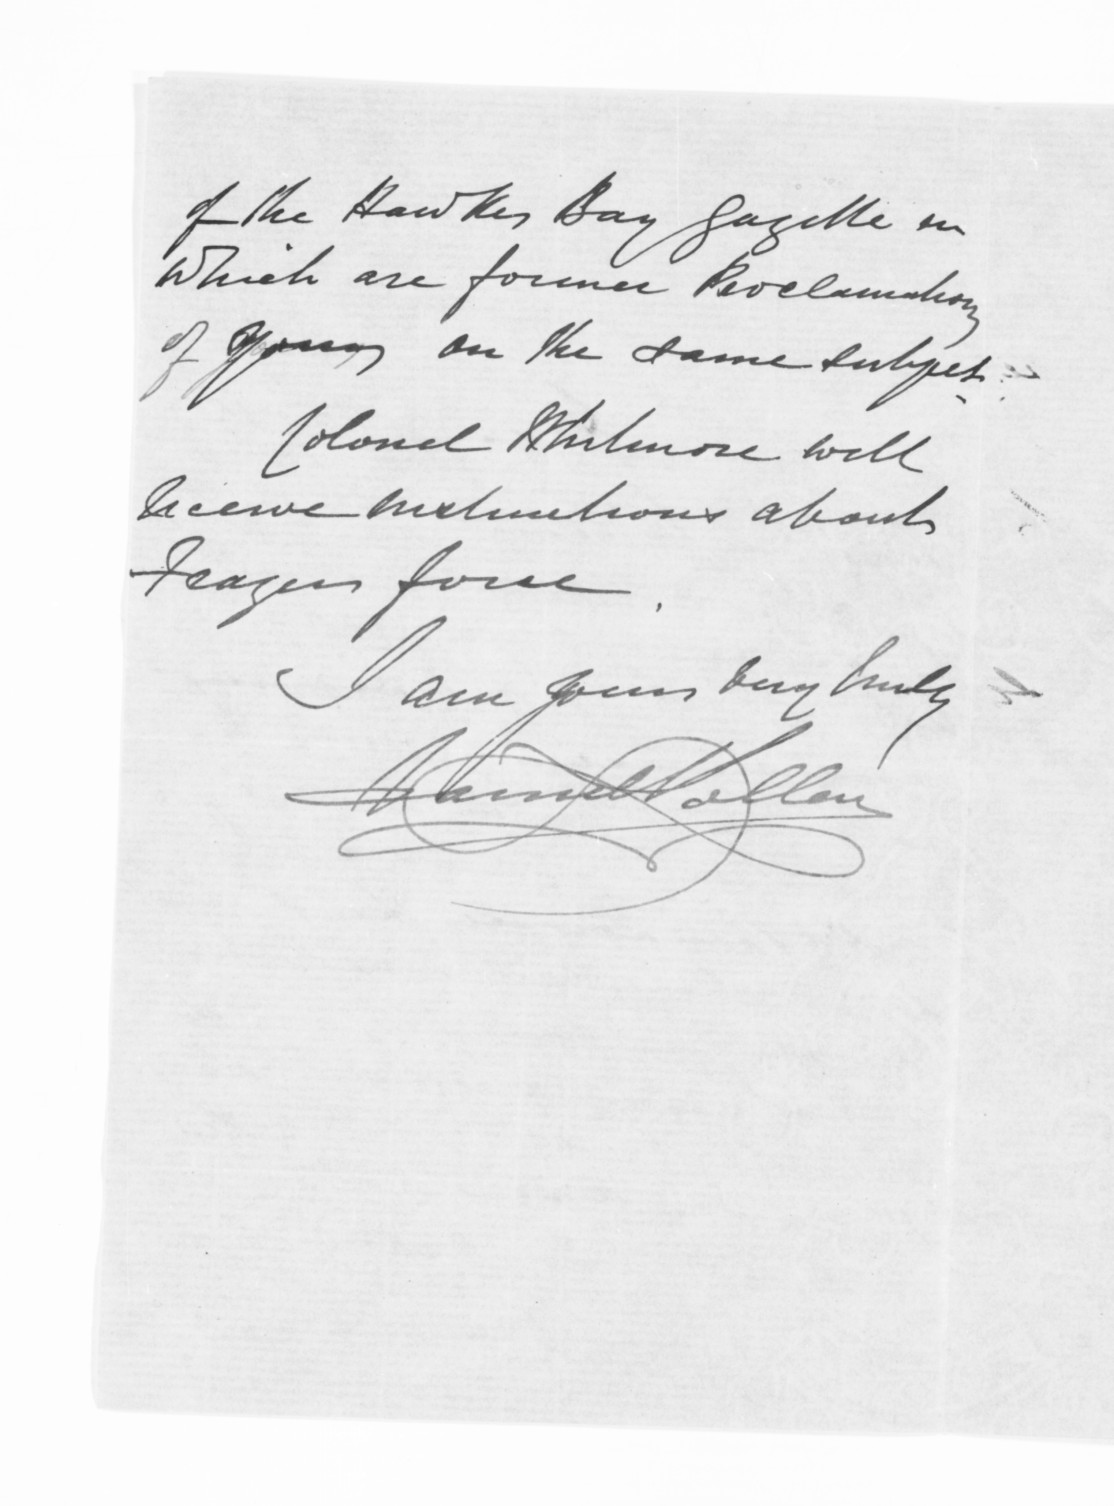 of the Hawkes Bay Gazette in
which are former Proclamations
of yours on the same subject.
Colonel Whitmore will
receive instructions about
Frazers force.
I am yours very truly
Daniel Pollen